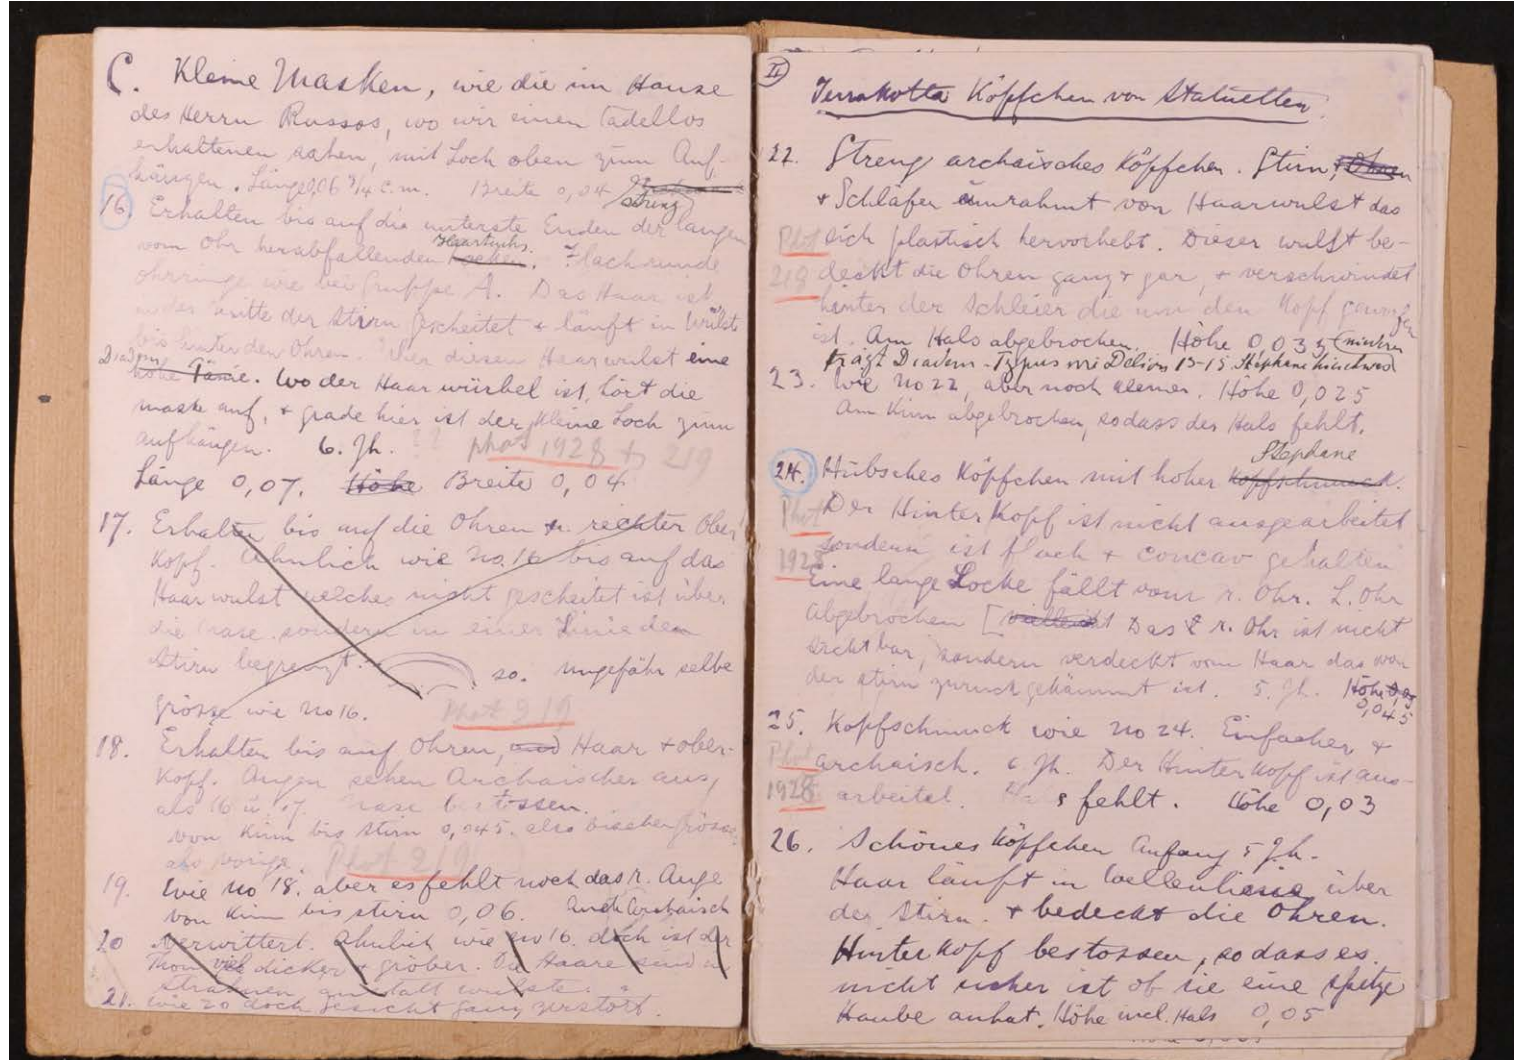 C. Kleine Masken, wie die im Hause
des Herrn Russos, wo wir einen tadellos
erhaltenen sahen, mit Loch oben zum Auf-
hängen. Länge 0,06 3/4 c.m. Breite 0,04
streng
16 Erhalten bis auf die unterste Enden der langen
Haartuchs.
vom Ohr herabfallenden Locken. Flachrunde
ohrringe wie bei Gruppe A. Das Haar ist
in der Mitte der Stirn gescheitet + läuft in Wülst
bis hinter den Ohren. Über diesen Haarwulst eine
Diadem
hohe Tänie. Wo der Haar würbel ist, hört die
maske auf, + grade hier ist der kleine Loch zum
aufhängen. 6. Jh. ?? phot 1928 + 219
Länge 0,07. Höhe Breite 0,04
17. Erhalten bis auf die Ohren + rechter Ober
Kopf. Ähnlich wie No. 16 bis auf das
Haarwulst welches nicht gescheitet ist über
die Nase sondern in einer Linie dem
Stirn begrenzt. so. ungefähr selbe
grösse wie No 16. Phot 219
18. Erhalten bis auf Ohren, und Haar + ober-
Kopf. Augen sehen Archaischer aus,
als 16 u. 17. Nase bestossen.
von Kinn bis Stirn 0,045. also bischen grösser
als vorige. Phot 219
19. Wie No 18. aber es fehlt noch das r. Auge
von Kinn bis stirn 0,06. Auch Archaisch
20 Verwittert. Ähnlich wie No 16. doch ist der
Thon viel dicker + gröber. Die Haare sind in
Strähnen anstatt wulste.
21. wie 20 doch Gesicht ganz zerstört.
II
Terrakotta Köpfchen von Statuetten.
22. Streng archaisches Köpfchen. Stirn, Ohren
+ Schläfen umrahmt von Haarwulst das
Phot sich plastisch hervorhebt. Dieser wulst be-
219 deckt die Ohren ganz + gar, + verschwindet
hinter der Schleier die um den Kopf geworfen
ist. Am Hals abgebrochen. Höhe 0,035
trägt Diadem - Typus wie Delion 13-15 Stephane
23. Wie No 22, aber noch kleiner. Höhe 0,025
Am Kinn abgebrochen, sodass der Hals fehlt.
Stephane
24. Hübsches Köpfchen mit hoher Kopfschmuck.
Phot Der Hinterkopf ist nicht ausgearbeitet
sondern ist flach + concav gehalten
1928 Eine lange Locke fällt vom r. Ohr. L. Ohr
abgebrochen [vielleicht Das r. Ohr ist nicht
sichtbar, sondern verdeckt vom Haar das von
der stirn zurückgekämmt ist. 5. Jh. Höhe 0,05
0,045
25. Kopfschmuck wie No 24. Einfacher +
Phot archaisch. 6 Jh. Der Hinterkopf ist aus-
1928 arbeitet. Hals fehlt. Höhe 0,03
26. Schönes Köpfchen Anfang 5 Jh.
Haar läuft in Wellenlinie über
der Stirn. + bedeckt die Ohren.
Hinterkopf bestossen, so dass es
nicht sicher ist ob sie eine spitze
Haube anhat. Höhe incl. Hals 0,05